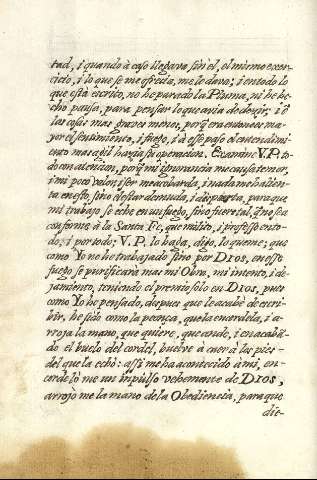 tad, i quando à caso llegava sin el, el mismo exer-
cicio, i lo que se me ofrecia, me le dava; i en todo lo
que està escrito, no he parado la Pluma, ni he he-
cho pausa, para pensar lo que avia de dezir; i ê
las cosas mas graves menos, porq̃ era entonces ma-
yor el sentimiento, i fuego, i à esse paso el entendimi-
ento mas agil hazia su operacion. Examine V. P. to-
do con atencion, porq̃ mi ignorancia me causa temor,
i mi poco valor, i ser me acobarda, i nada me halien-
ta en esto, sino el estar desnuda, i dispuesta, para que
mi trabajo se eche en un fuego, sino fuere tal, q̃ no sea
conforme à la Santa Fe, que milito, i professo en to-
do; i por todo; V. P. lo haga, digo, lo queme; que
como Yo no he trabajado sino por DIOS, en esse
fuego se purificarà mas mi Obra, mi intento, i de-
jamiento, teniendo el premio solo en DIOS, pues
como Yo he pensado, despues que le acabè de escri-
bir, he sido como la peonça, que la encordela, i a-
rroja la mano, que quiere, que ande, i en acaban-
do el buelo del cordel, buelve à caer à los pies
del que la echò: assi me ha acontecido à mi, en-
cordelòme un inpulso vehemente de DIOS,
arrojòme la mano de la Obediencia, para que
die-